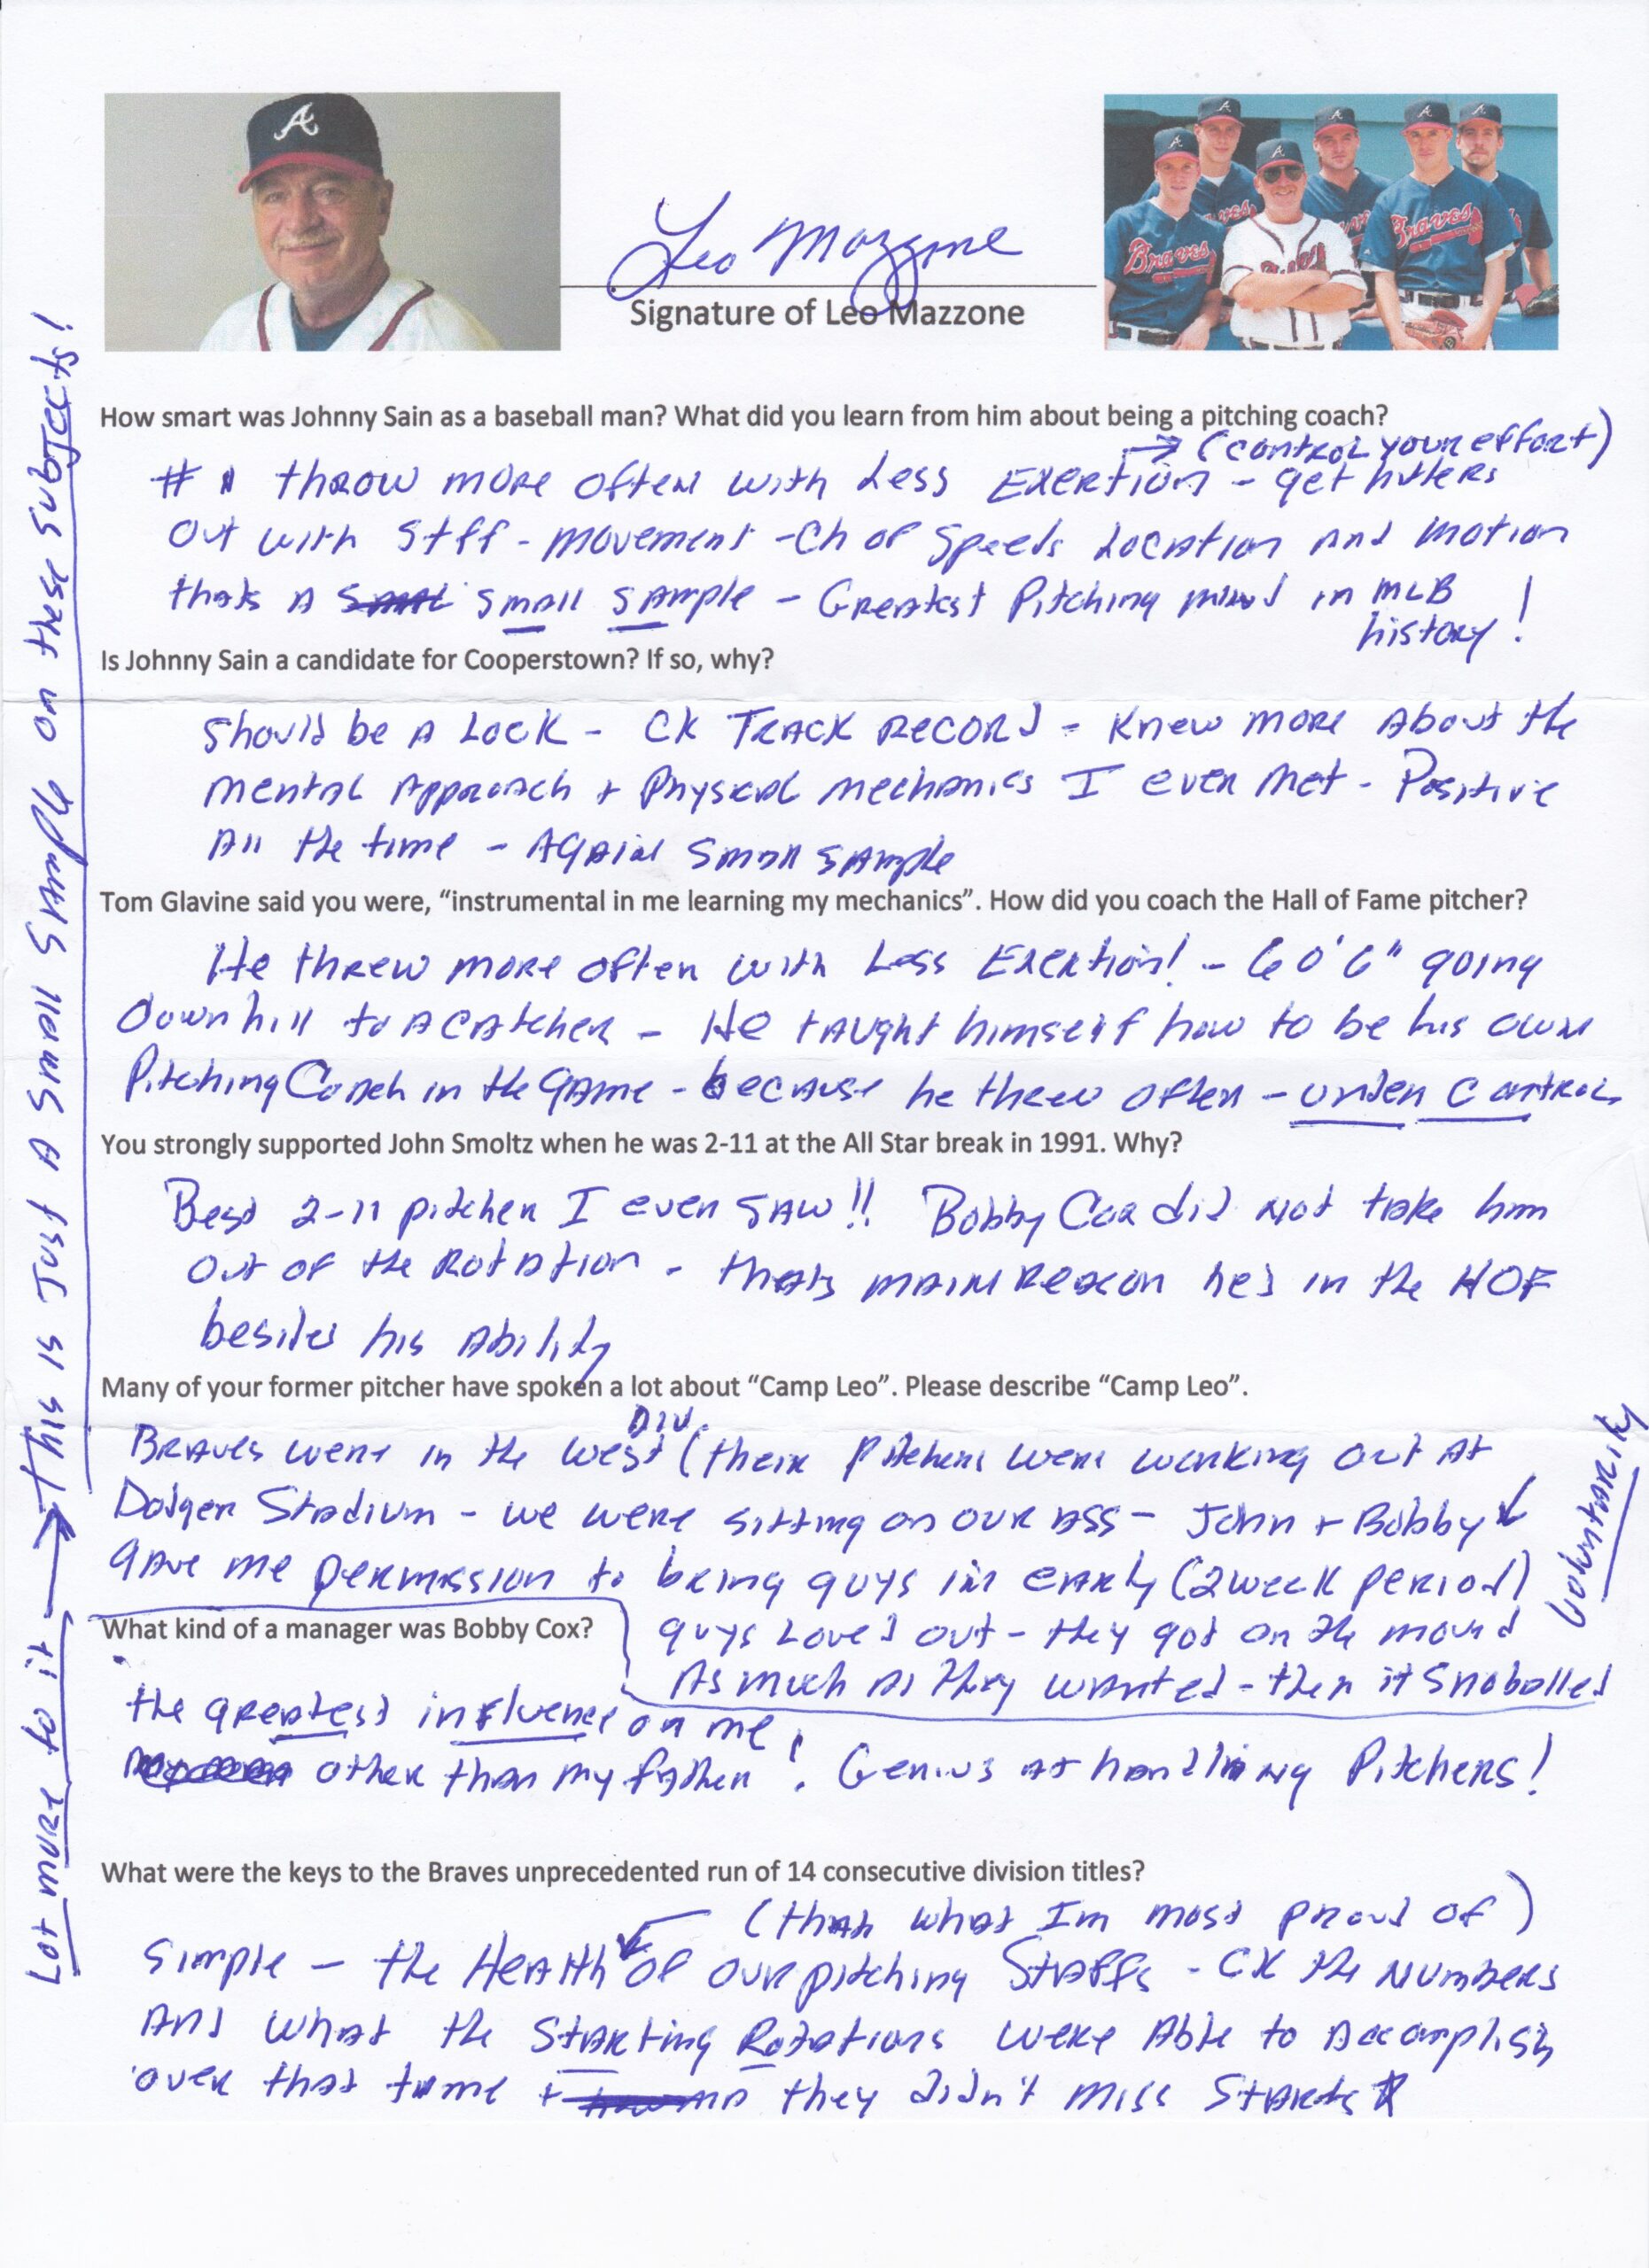 A
A A A A A A
Braves Braves
Leo Mazzone
Signature of Leo Mazzone
How smart was Johnny Sain as a baseball man? What did you learn from him about being a pitching coach?
→ (control your effort)
#1 throw more often with Less Exertion - get hitters
out with Stff - movement - Ch of Speeds Location and motion
thats A small sample - Greatest Pitching mind in MLB
history!
Is Johnny Sain a candidate for Cooperstown? If so, why?
Should be A Lock - CK TRACK RECORD - Knew more About the
mental Approach + Physical mechanics I ever met - Positive
All the time - Again small sample
Tom Glavine said you were, “instrumental in me learning my mechanics”. How did you coach the Hall of Fame pitcher?
He threw more often with Less Exertion! - 60'6" going
downhill to a catcher - He taught himself how to be his own
Pitching Coach in the game - because he threw often - under Control
You strongly supported John Smoltz when he was 2-11 at the All Star break in 1991. Why?
Best 2-11 pitcher I ever saw!! Bobby Cox did not take him
out of the Rotation - thats main Reason he's in the HOF
besides his Ability
Many of your former pitcher have spoken a lot about “Camp Leo”. Please describe “Camp Leo”.
Braves were in the West Div. (their pitchers were working out at
Dodger Stadium - we were sitting on our ass - John + Bobby
gave me permission to bring guys in early (2 week period)
voluntarily
guys Loved out - they got on the mound
As much as they wanted - then it Snoballed
What kind of a manager was Bobby Cox?
the greatest influence on me
other than my father! Genius at handling Pitchers!
What were the keys to the Braves unprecedented run of 14 consecutive division titles?
(thats what Im most proud of)
Simple - the Health of our pitching Staffs - CK the numbers
And what the Starting Rotations were Able to Accomplish
over that time + they didn't miss Starts
Lot more to it → This is Just A Small Sample on these Subjects!